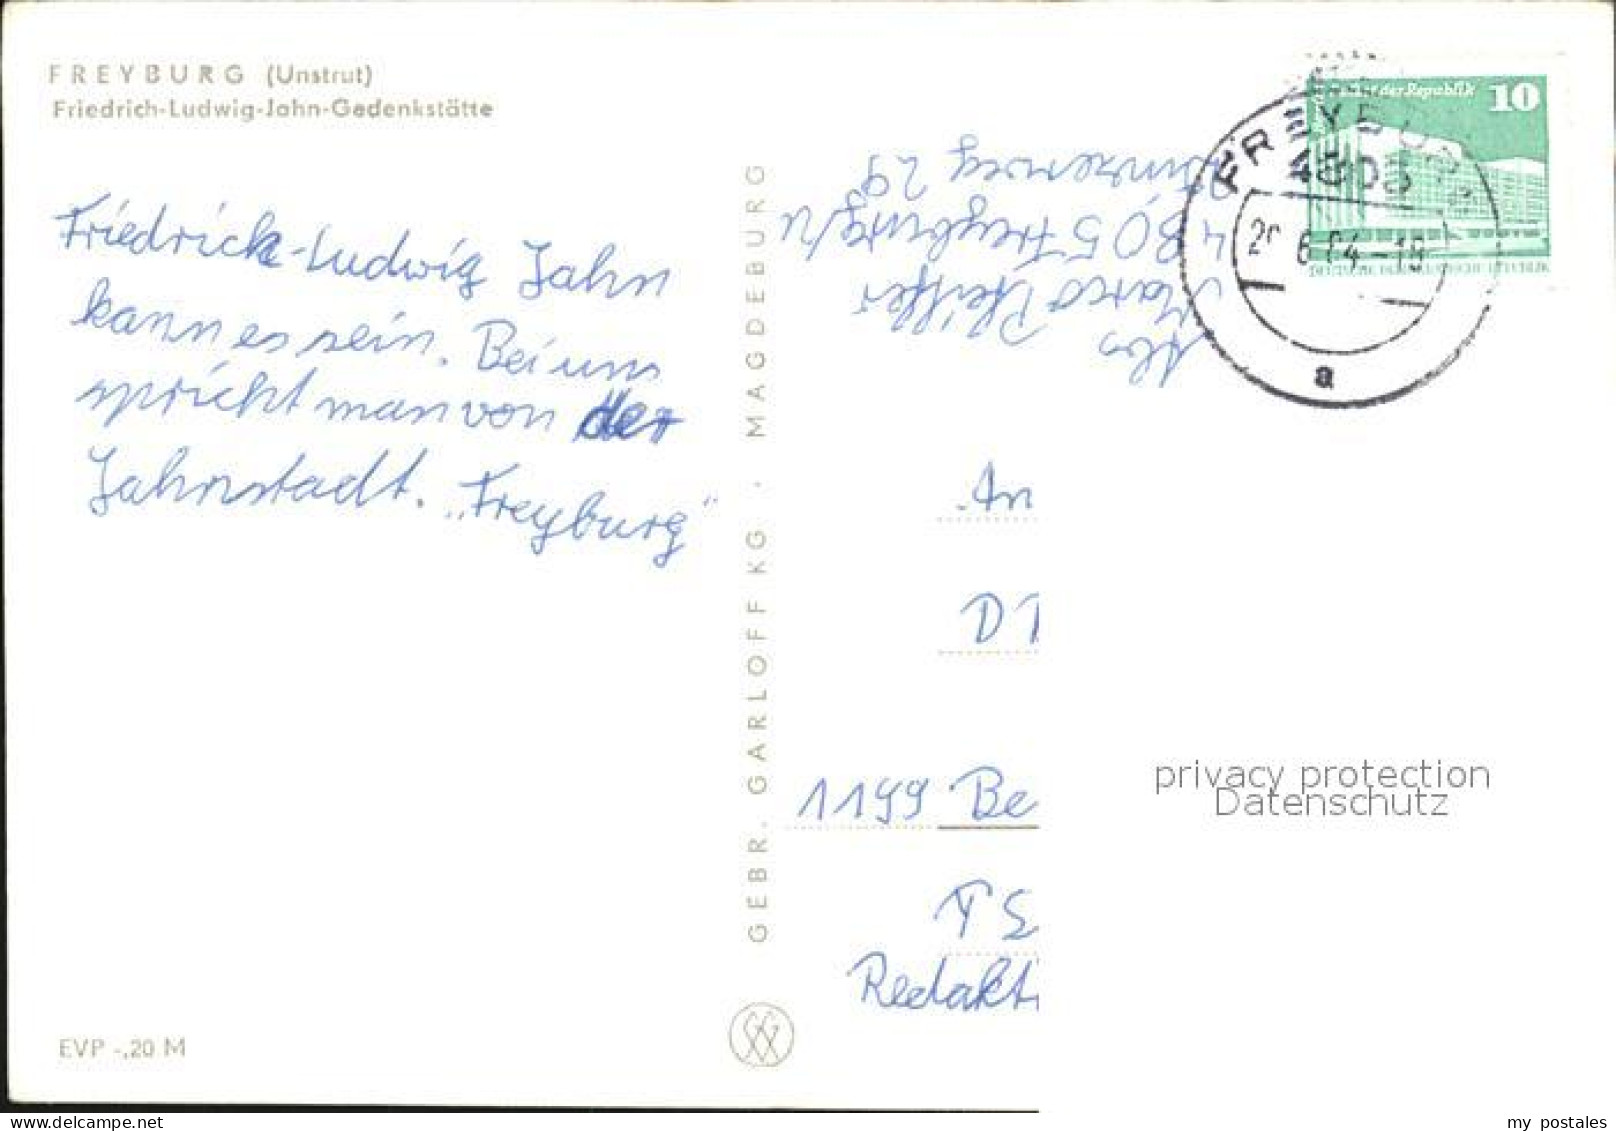 FREYBURG (Unstrut)
Friedrich-Ludwig-Jahn-Gedenkstätte
Friedrick-Ludwig Jahn
kann es sein. Bei uns
spricht man von der
Jahnstadt. „Freyburg"
EVP -,20 M
GEBR. GARLOFF KG · MAGDEBURG
Abs
Marco
4805 Freyburg/U
29
10
der Republik
FREYBURG
4805
6.84-18
a
An
DT
1199 Be
TS
Redakti
privacy protection
Datenschutz
www.delcampe.net
my_postales